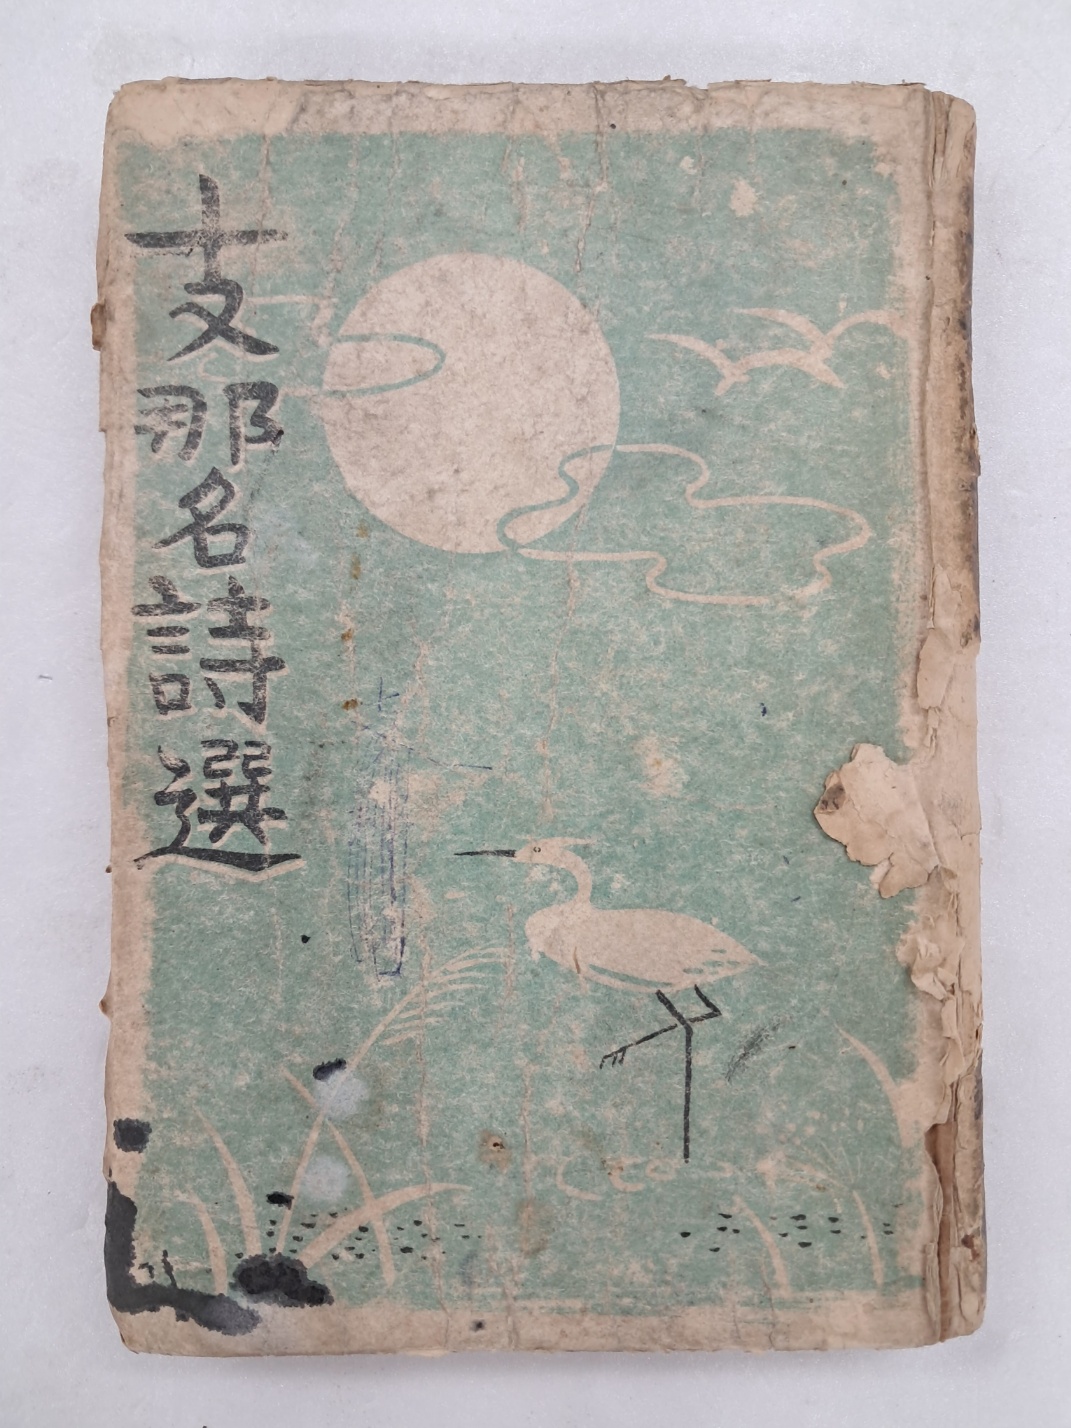 支那名詩選